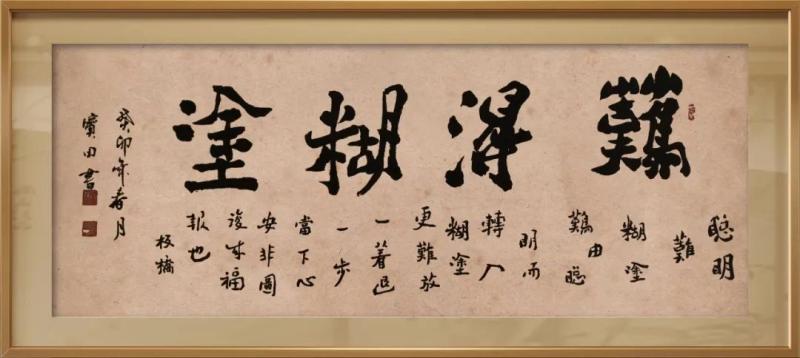 難得糊塗
聰明
難
糊塗
難由聰
明而
轉入
糊塗
更難放
一著退
一步
當下心
安非圖
後來福
報也
板橋
癸卯年春月
寶田書